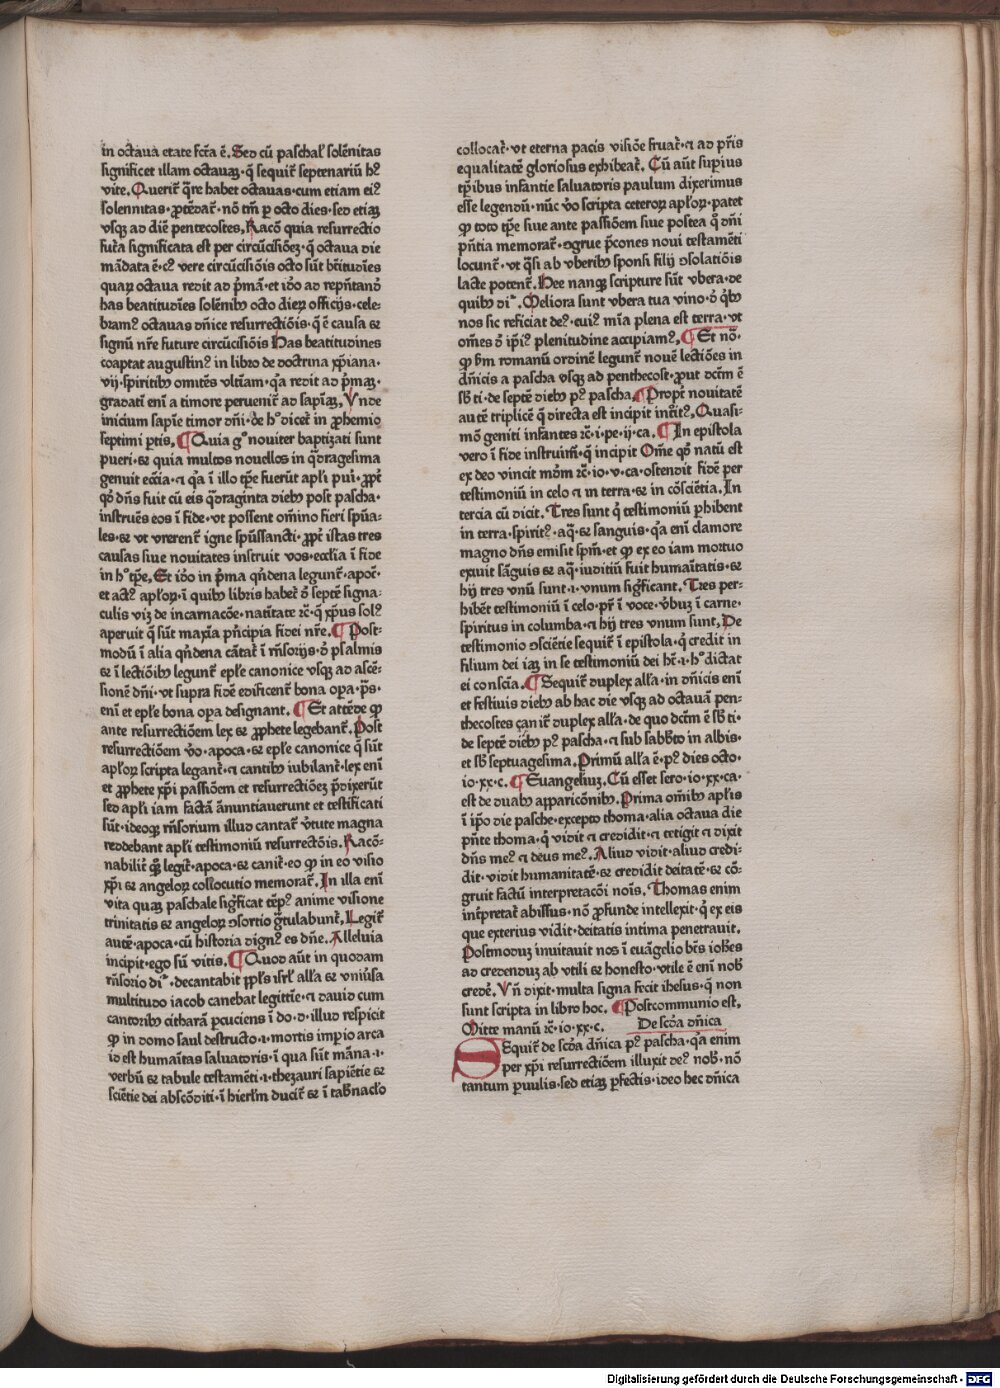 in octaua etate fcta ē. Sed cū paschal̄ solēnitas
significet illam octauaꝫ · q̄ sequiť septenariū hꝰ
vite. Queriť q̄re habet octauas · cum etiam eiꝰ
solennitas · ꝓtēdať · nō tm̄ ꝑ octo dies · sed etiaꝫ
vsqꝫ ad diē pentecostes, Racō quia resurrectio
futa̅ significata est per circūcisiōeꝫ · q̄ octaua die
mādata ē · cꝰ vere circūcisiōis octo sūt btitudies
quaꝝ octaua redit ad p̄mā · et iđo ad rep̄ntandō
has beatitudīes solēnibꝫ octo dieꝝ officijs · cele-
bramꝰ octauas dn̄ice resurrectiōis · q̄ ē causa ꝛ
signū nr̄e future circūcisiōis Has beatitudines
coaptat augustinꝰ in libro de doctrina xp̄iana ·
vij · spiritibꝫ omitēs vltīam · qꝛ redit ad p̄maꝫ ·
gradatī enī a timore perueniť ad sapīaꝫ, Vnde
inicium sapīe timor dn̄i · đe hꝰ diceť in ꝓhemio
septimi ꝑtis, ¶ Quia gꝰ nouiter baptiꝫati sunt
pueri · ꝛ quia multos nouellos in qđragesima
genuit eccīia · ⁊ qꝛ ī illo tꝑe fuerūt apłi pui · ꝓpť
qđ dn̄s fuit cū eis qđraginta diebꝫ post pascha ·
instruēs eos ī fide · vt possent om̄ino fieri spūa-
les · ꝛ vt vrerenť igne spūssancti · ꝓpť istas tres
causas siue nouitates instruit vos · ecclīa ī fide
in hꝰ tꝑe, Et iđo in p̄ma qn̄dena legunť · apoč ·
et actꝰ apłoꝝ · ī quibꝫ libris habeť đ septē signa-
culis viꝫ de incarnacōe · natīitate ꝛč · q̄ xp̄us solꝰ
aperuit q̄ sūt maxīa pn̄cipia fidei nr̄e. ¶ Post-
modū ī alia qn̄dena cātať ī rn̄sorijs · đ psalmis
ꝛ ī lectiōibꝫ legunť epłe canonice vsqꝫ ad ascē-
sionē dn̄i · vt supra fidē edificenť bona opa · p̄s ·
enī et epłe bona opa designant. ¶ Et attēde ꝙ
ante resurrectiōem lex ꝛ ꝓphete legebanť. Post
resurrectiōem vđo · apoca · ꝛ epłe canonice q̄ sūt
apłoꝝ scripta leganť · ⁊ cantibꝫ iubilanť · lex enī
et ꝓphete xp̄i passiōem et resurrectiōeꝫ p̄dixerūt
sed apłi iam factā ānuntiauerunt et testificati
sūt · ideoqꝫ rn̄sorium illud cantať v̄tute magna
reddebant apłi testimoniū resurrectōis. Racō-
nabiliť qq̄ꝫ legiť · apoca · ꝛ caniť · eo ꝙ in eo visio
xp̄i ꝛ angeloꝝ collocutio memorať. In illa enī
vita quaꝫ paschale sigficat tēpꝰ anime visione
trinitatis ꝛ angeloꝝ ꝯsortio gtulabunť. Legiť
autē · apoca · cū historia dignꝰ es dn̄e. Alleluia
incipit · ego sū vitis. ¶ Quod aūt in quodam
rn̄sorio diꝛ · decantabit ppłs isrł alła ꝛ vniūsa
multitudo iacob canebat legittīe · ⁊ dauid cum
cantoribꝫ citharā ꝑcuciens ī do · d · illud respicit
ꝙ in domo saul destructo · ı · mortis impio arca
id est humaītas saluatoris · ī qua sūt māna · ı ·
verbū ꝛ tabule testamēti · ı · theꝫauri sapiētie ꝛ
sciētie dei abscōditi · ī hierłm duciť ꝛ ī tabnaclo
collocať · vt eterna pacis visiōe fruať · ⁊ ad pr̄is
equalitatē gloriosus exhibeať. Cū aūt supius
tꝑibus infantie saluatoris paulum dixerimus
esse legendū · nūc vđo scripta ceteroꝝ apłoꝝ · patet
ꝙ toto tꝑe siue ante passiōem siue postea q̄ dn̄i
pn̄tia memorať · ꝯgrue p̄cones noui testamēti
locunť · vt q̄si ab vberibꝫ sponsi filij ꝯsolatiōis
lacte potenť. Hee nanqꝫ scripture sūt vbera · de
quibꝫ diꝛ. Meliora sunt vbera tua vino · đ qđbꝫ
nos sic reficiat deꝰ · cuiꝰ mīa plena est terra · vt
om̄es đ ip̄iꝰ plenitudine accipiamꝰ, ¶ Et nō ·
ꝙ bm̄ romanū ordinē legunť nouē lectiōes in
dn̄icis a pascha vsqꝫ ad penthecost · ꝓut dcm̄ ē
sƀ ti · de septē diebꝫ pꝰ pascha. ¶ Propť nouitatē
autē triplicē q̄ directa est incipit intiťꝰ, Quasi-
mō geniti infantes ꝛč · i · pe · ij · ca. ¶ In epistola
vero ī fide instruim̄ · q̄ incipit Om̄e qđ natū est
ex deo vincit mđm ꝛč · io · v · ca · ostendit fidē per
testimoniū in celo ⁊ in terra · ꝛ in cōsciētia. In
tercia cū dicit. Tres sunt q̄ testimoniū ꝑhibent
in terra · spiritꝰ · aqꝫ · ꝛ sanguis · qꝛ enī clamore
magno dn̄s emisit spm̄ · et ꝙ ex eo iam mortuo
exiuit sāguis ꝛ aqꝫ · iuditiū fuit humaītatis · ꝛ
hij tres vnū sunt · ı · vnum sigficant. Tres per-
hibēt testimoniū ī celo · pr̄ ī voce · v̄buꝫ ī carne ·
spiritus in columba · ⁊ hij tres vnum sunt, De
testimonio ꝯsciētie sequiť ī epistola · q̄ credit in
filium dei iaꝫ in se testimoniū dei ht̄ · ı · hꝰ dictat
ei conscīa. ¶ Sequiť duplex alła · in dn̄icis enī
et festiuis diebꝫ ab hac die vsqꝫ ad octauā pen-
thecostes caniť duplex alła · de quo dcm̄ ē sƀ ti ·
de septē diebꝫ pꝰ pascha · ⁊ sub sabbto in albis ·
et sƀ septuagesima. Primū alła ē · pꝰ dies octo ·
io · xx · c. ¶ Euangeliuꝫ. Cū esset sero · io · xx · ca ·
est de duabꝫ apparicōnibꝫ. Prima om̄ibꝫ apłis
ī ip̄o die pasche · excepto thoma · alia octaua die
pn̄te thoma · q̄ vidit ⁊ credidit · ⁊ tetigit ⁊ dixit
dn̄s meꝰ ⁊ deus meꝰ. Aliud vidit · aliud credi-
dit · vidit humanitatē · ꝛ credidit deitatē · ꝛ cō-
gruit factū interpretacōi noīs, Thomas enim
intp̄etať abissus · nō ꝓfunde intellexit · q̄ ex eis
que exterius vidit · deitatis intima penetrauit.
Postmoduꝫ inuitauit nos ī euāgelio bt̄s ioħes
ad credenduꝫ ab vtili ꝛ honesto · vtile ē enī nobꝫ
cređe. Vn̄ dixit · multa signa fecit ihesus · q̄ non
sunt scripta in libro hoc. ¶ Postcommunio est,
Mitte manū ꝛč · io · xx · c. De scđa dn̄ica
SEquiť de scđa dn̄ica pꝰ pascha · qꝛ enim
per xp̄i resurrectiōem illuxit deꝰ nobꝫ · nō
tantum ꝑuulis · sed etiaꝫ ꝑfectis · ideo hec dn̄ica
Digitalisierung gefördert durch die Deutsche Forschungsgemeinschaft · DFG